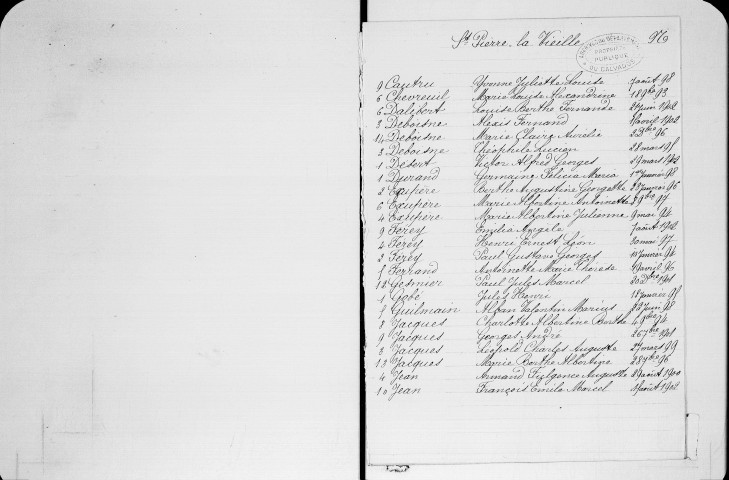 St Pierre la Vieille 96
PROPRIÉTÉ
PUBLIQUE
DU CALVADOS
9 Cautru Yvonne Juliette Louise 7 août 98
6 Chevreuil Marie Louise Alexandrine 18 9bre 93
6 Dalibert Louise Berthe Fernande juin 1902
3 Deboisne Alexis Fernand avril 1902
14 Deboisne Marie Claire Aurélie 2 Dbre 96
3 Deboisne Théophile Lucien 28 mars 95
1 Désert Victor Alfred Georges 29 mars 1902
1 Durand Germaine Félicia Maria 17 janvier 98
2 Exupère Berthe Augustine Georgette 28 janvier 96
6 Exupère Marie Albertine Antoinette 9bre 97
4 Exupère Marie Albertine Julienne 9 mai 94
9 Ferey Emilia Angèle 7 août 1902
4 Ferey Henri Ernest Léon 30 mai 97
2 Ferey Paul Gustave Georges janvier 94
5 Ferrand Antoinette Marie Thérèse 19 avril 96
12 Gesnier Paul Jules Marcel 20 Dbre 1901
1 Gobé Jules Henri 18 janvier 95
5 Guilmain Alban Valentin Marius juin 98
8 Jacques Charlotte Albertine Berthe 4 9bre 94
9 Jacques Georges André 26 7bre 1901
3 Jacques Léopold Charles Auguste 27 mars 99
13 Jacques Marie Berthe Albertine 28 7bre 96
4 Jean Armand Fulgence Auguste 29 août 1900
10 Jean François Emile Marcel août 1902